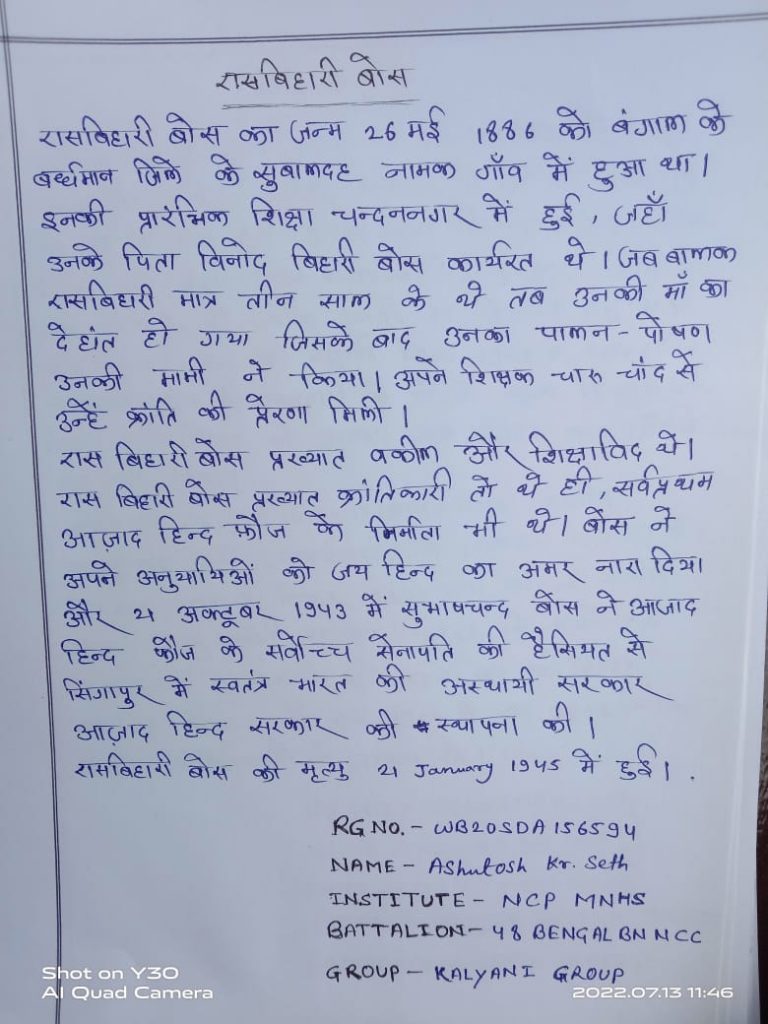 रासबिहारी बोस
रासबिहारी बोस का जन्म 26 मई 1886 को बंगाल के
बर्ध्धमान जिले के सुबालदह नामक गाँव में हुआ था।
इनकी प्रारंभिक शिक्षा चन्दननगर में हुई, जहाँ
उनके पिता विनोद बिहारी बोस कार्यरत थे। जब बालक
रासबिहारी मात्र तीन साल के थे तब उनकी माँ का
देहांत हो गया जिसके बाद उनका पालन-पोषण
उनकी मामी ने किया। अपने शिक्षक चारू चाँद से
उन्हें क्रांति की प्रेरणा मिली।
रास बिहारी बोस प्रख्यात वकील और शिक्षाविद थे।
रास बिहारी बोस प्रख्यात क्रांतिकारी तो थे ही, सर्वप्रथम
आज़ाद हिन्द फ़ौज के निर्माता भी थे। बोस ने
अपने अनुयायिओं को जय हिन्द का अमर नारा दिया
और 21 अक्टूबर 1943 में सुभाषचन्द बोस ने आजाद
हिन्द फौज के सर्वोच्च सेनापति की हैसियत से
सिंगापुर में स्वतंत्र भारत की अस्थायी सरकार
आज़ाद हिन्द सरकार की स्थापना की।
रासबिहारी बोस की मृत्यु 21 January 1945 में हुई।.
RG NO. - WB20SDA156594
NAME - Ashutosh Kr. Seth
INSTITUTE - NCP MNHS
BATTALION - 48 BENGAL BN NCC
GROUP - KALYANI GROUP
Shot on Y30
AI Quad Camera
2022.07.13 11:46